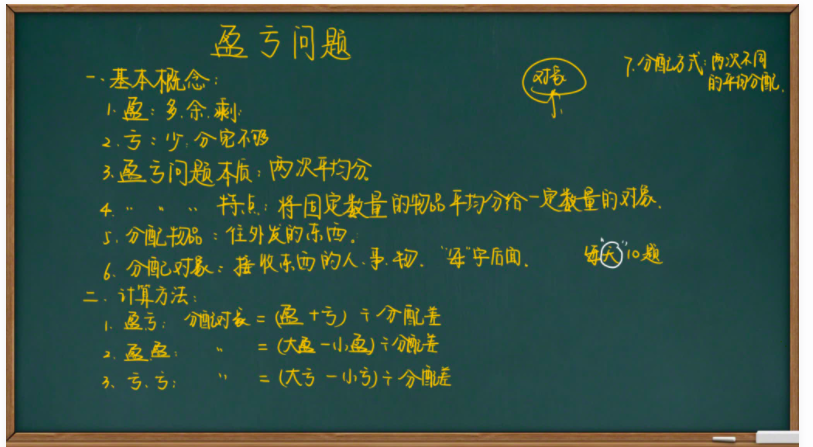 盈亏问题
一、基本概念:
1. 盈:多.余.剩.
2. 亏:少.分完不够
3. 盈亏问题本质:两次平均分.
4. 〃 〃 〃 特点:将固定数量的物品平均分给一定数量的对象.
5. 分配物品:往外发的东西。
6. 分配对象:接收东西的人.事.物. "每"字后面.
每"天"10题
二.计算方法:
1. 盈亏: 分配对象=(盈+亏)÷分配差
2. 盈盈: 〃 =(大盈-小盈)÷分配差
3. 亏.亏: 〃 =(大亏-小亏)÷分配差
对象
7. 分配方式:两次不同
的平均分配.